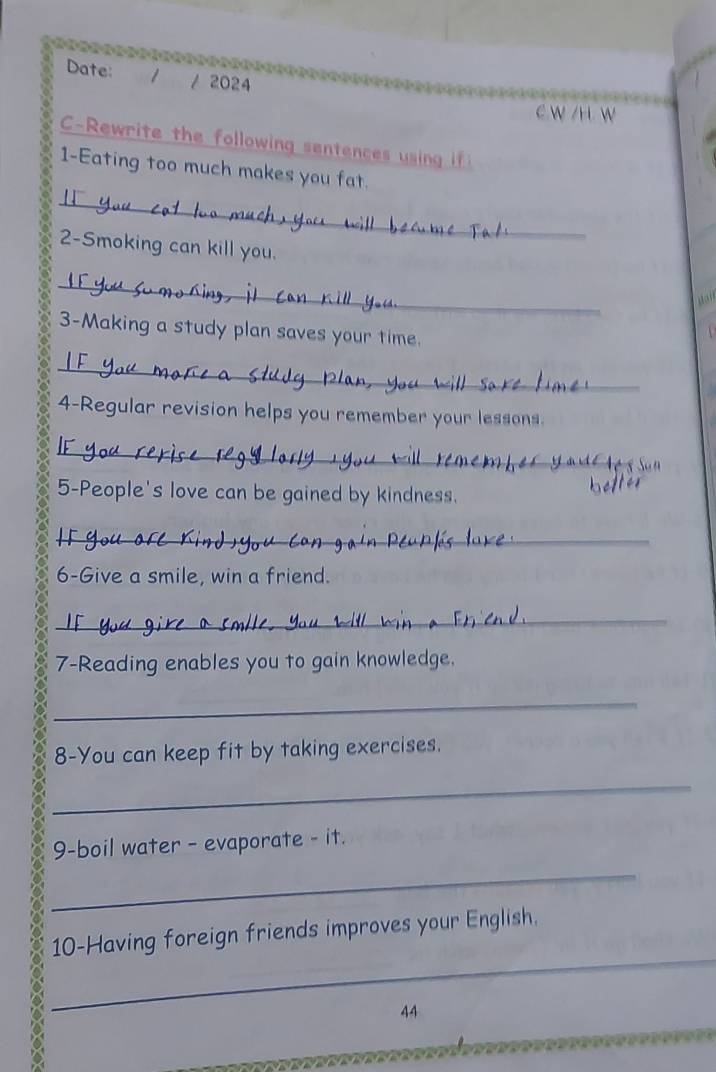 Date: / / 2024
C.W /H.W
C-Rewrite the following sentences using if:
1-Eating too much makes you fat.
If you eat too much, you will become fat.
2-Smoking can kill you.
If you sumoking, it can kill you.
3-Making a study plan saves your time.
IF you make a study plan, you will save time.
4-Regular revision helps you remember your lessons.
IF you revise regularly, you will remember your lesson
better
5-People's love can be gained by kindness.
If you are kind, you can gain people's love.
6-Give a smile, win a friend.
If you give a smile, you will win a Friend.
7-Reading enables you to gain knowledge.
8-You can keep fit by taking exercises.
9-boil water - evaporate - it.
10-Having foreign friends improves your English.
44